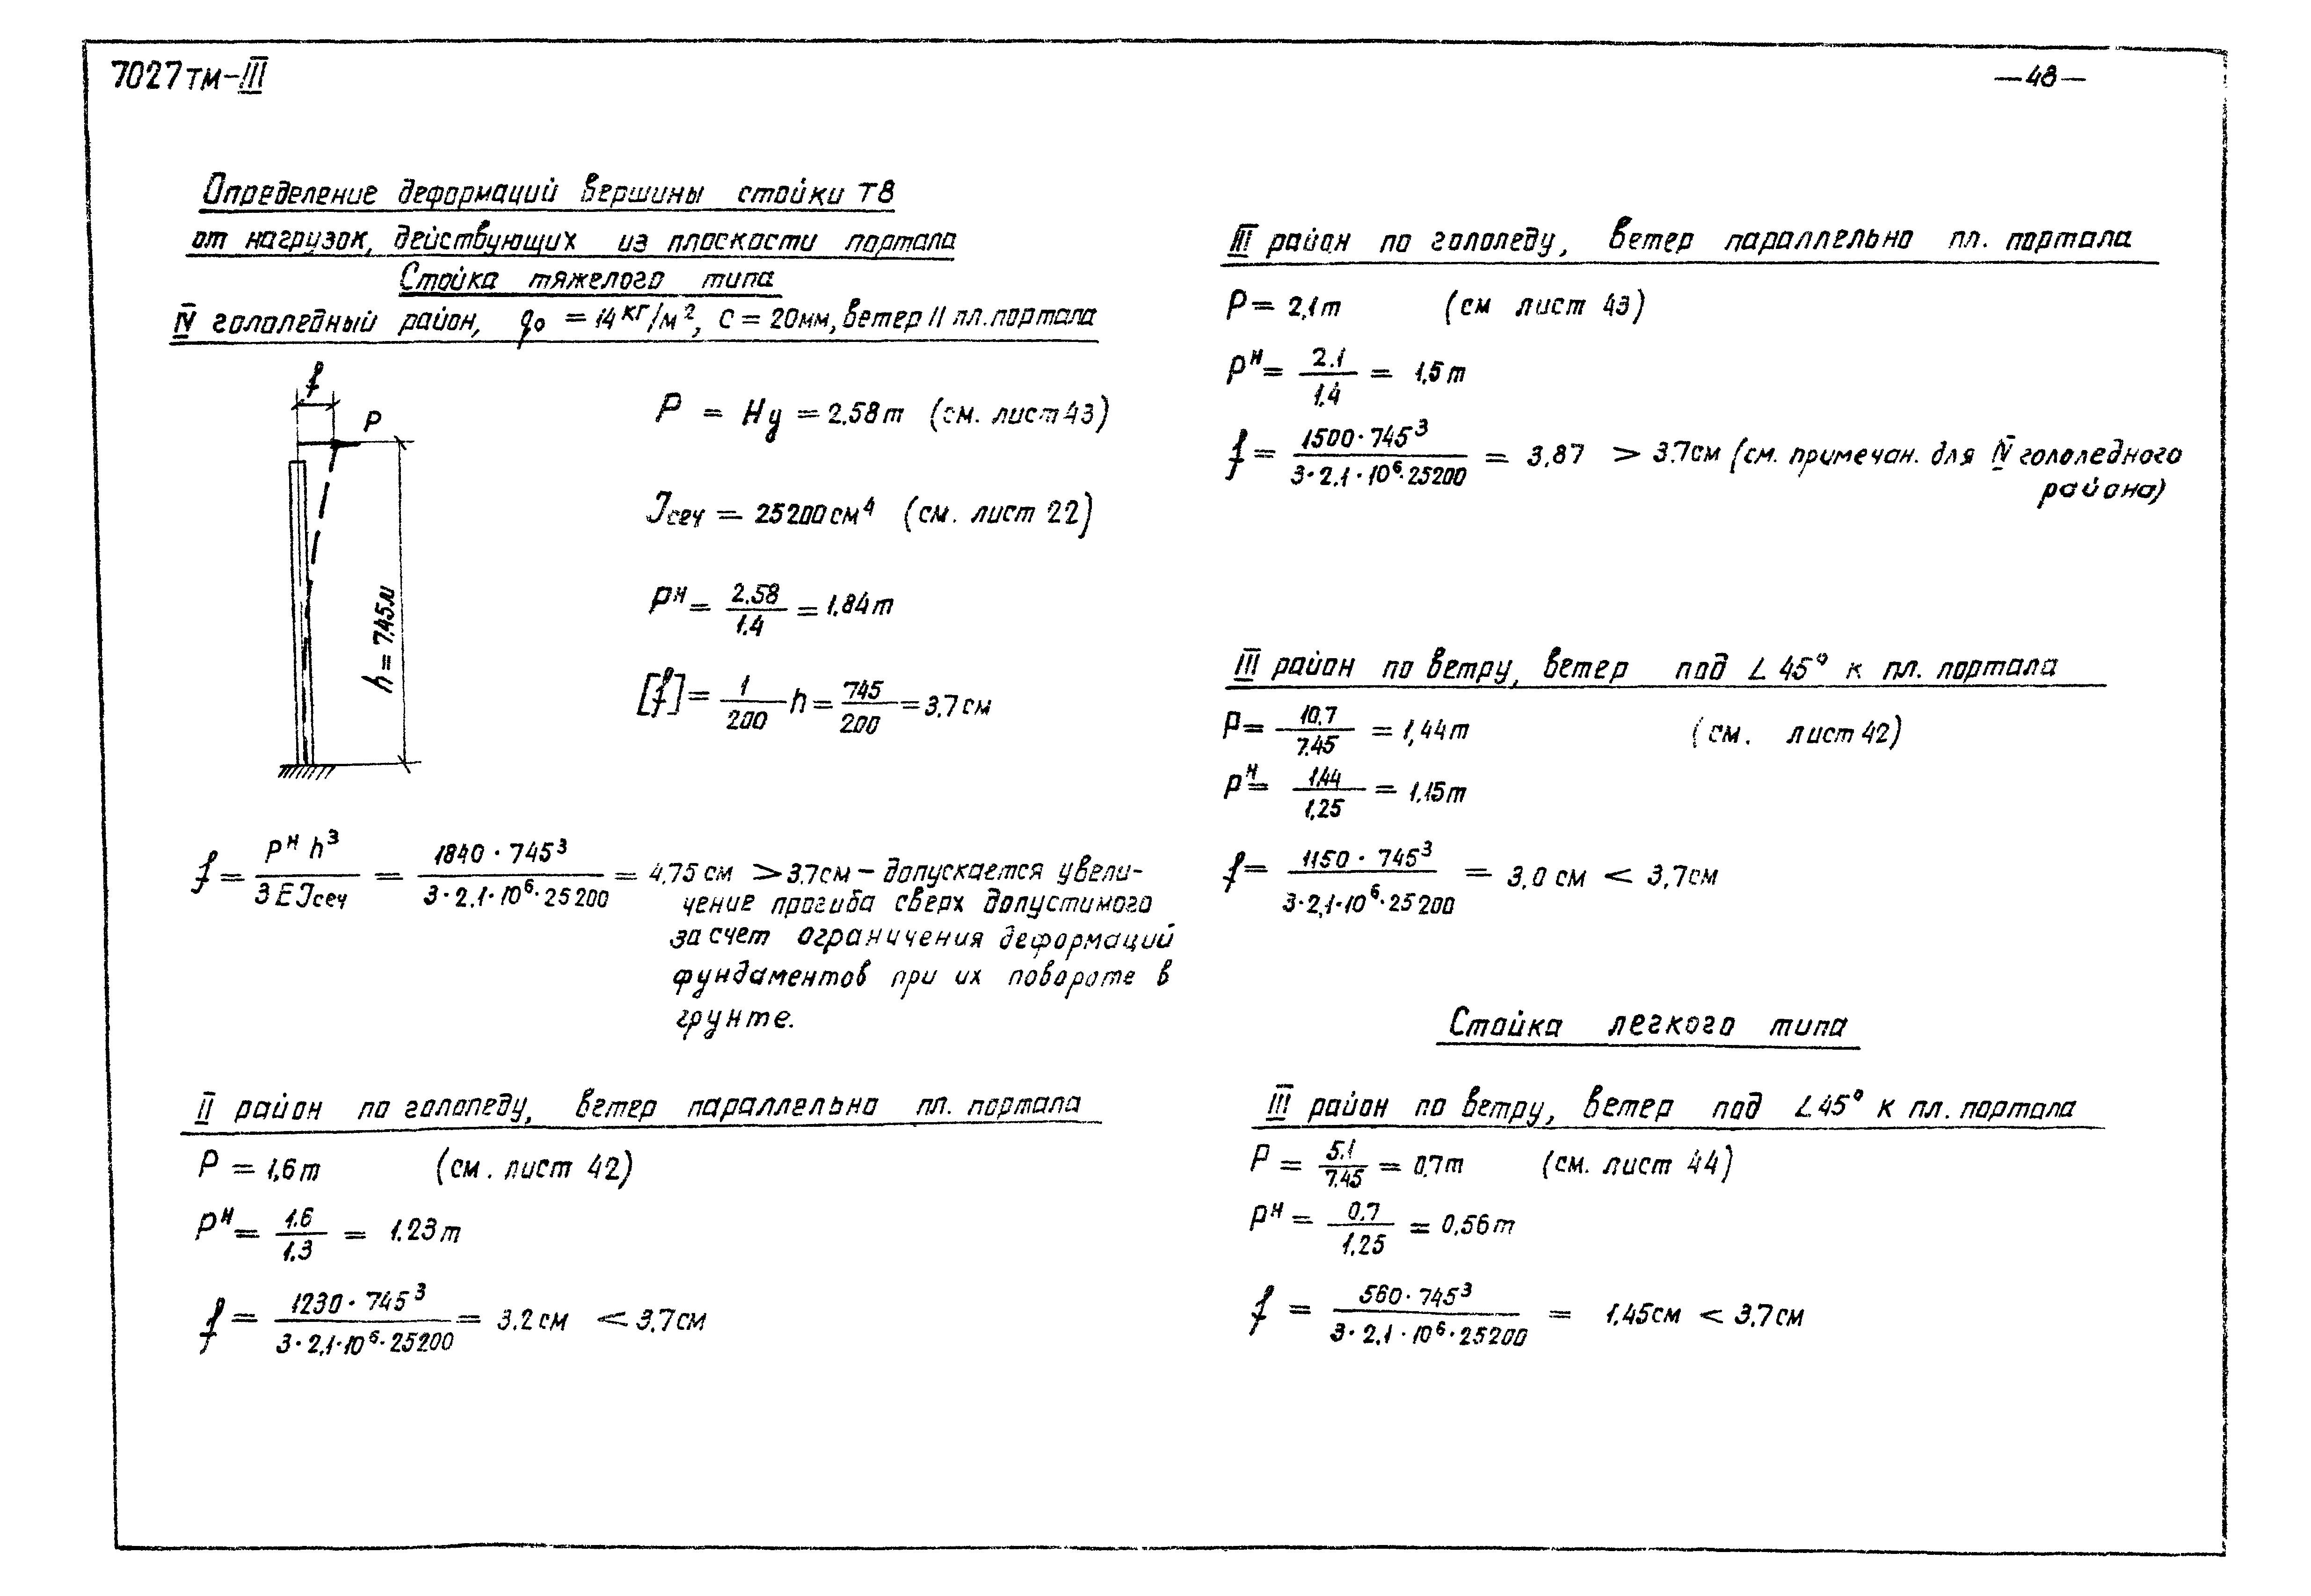 7027тм-III
—48—
Определение деформаций вершины стойки Т8
от нагрузок, действующих из плоскости портала
Стойка тяжелого типа
IV гололедный район, q₀ = 14 кг/м², С = 20мм, ветер // пл. портала
f
P
h = 7,45м
P = Hу = 2.58т (см. лист 43)
Jсеч = 25200см⁴ (см. лист 22)
Pᴴ = 2.58/1.4 = 1.84т
[f] = 1/200 h = 745/200 = 3.7см
f = Pᴴ h³ / 3EJсеч = 1840·745³ / 3·2.1·10⁶·25200 = 4,75 см > 3,7см – допускается увели-
чение прогиба сверх допустимого
за счет ограничения деформаций
фундаментов при их повороте в
грунте.
II район по гололеду, ветер параллельно пл. портала
P = 1,6т (см. лист 42)
Pᴴ = 1.6/1.3 = 1.23т
f = 1230·745³ / 3·2,1·10⁶·25200 = 3.2см < 3,7см
III район по гололеду, ветер параллельно пл. портала
P = 2,1т (см лист 43)
Pᴴ = 2.1/1.4 = 1,5т
f = 1500·745³ / 3·2,1·10⁶·25200 = 3,87 > 3.7см (см. примечан. для IV гололедного
района)
III район по ветру, ветер под ∠ 45° к пл. портала
P = 10,7/7.45 = 1,44т (см. лист 42)
Pᴴ = 1,44/1,25 = 1,15т
f = 1150·745³ / 3·2,1·10⁶·25200 = 3,0 см < 3,7см
Стойка легкого типа
III район по ветру, ветер под ∠45° к пл. портала
P = 5.1/7.45 = 0,7т (см. лист 44)
Pᴴ = 0,7/1.25 = 0,56т
f = 560·745³ / 3·2,1·10⁶·25200 = 1,45см < 3,7см